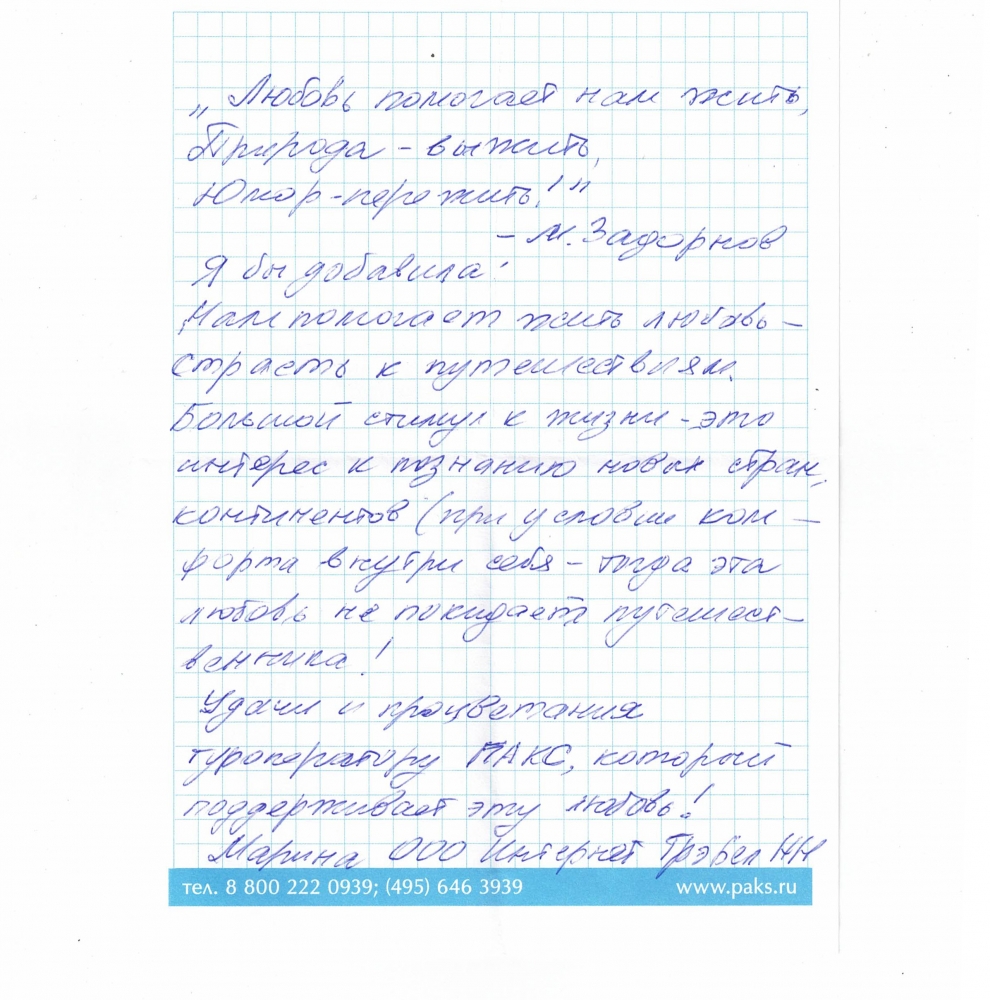 „Любовь помогает нам жить,
Природа - выжить,
Юмор - пережить!"
- М. Задорнов
Я бы добавила:
Нам помогает жить любовь -
страсть к путешествиям.
Большой стимул к жизни - это
интерес к познанию новых стран,
континентов (при условии ком -
форта внутри себя - тогда эта
любовь не покидает путешест-
венника!
Удачи и процветания
туроператору ПАКС, который
поддерживает эту любовь!
Марина ООО Интернет Трэвел НН
тел. 8 800 222 0939; (495) 646 3939 www.paks.ru